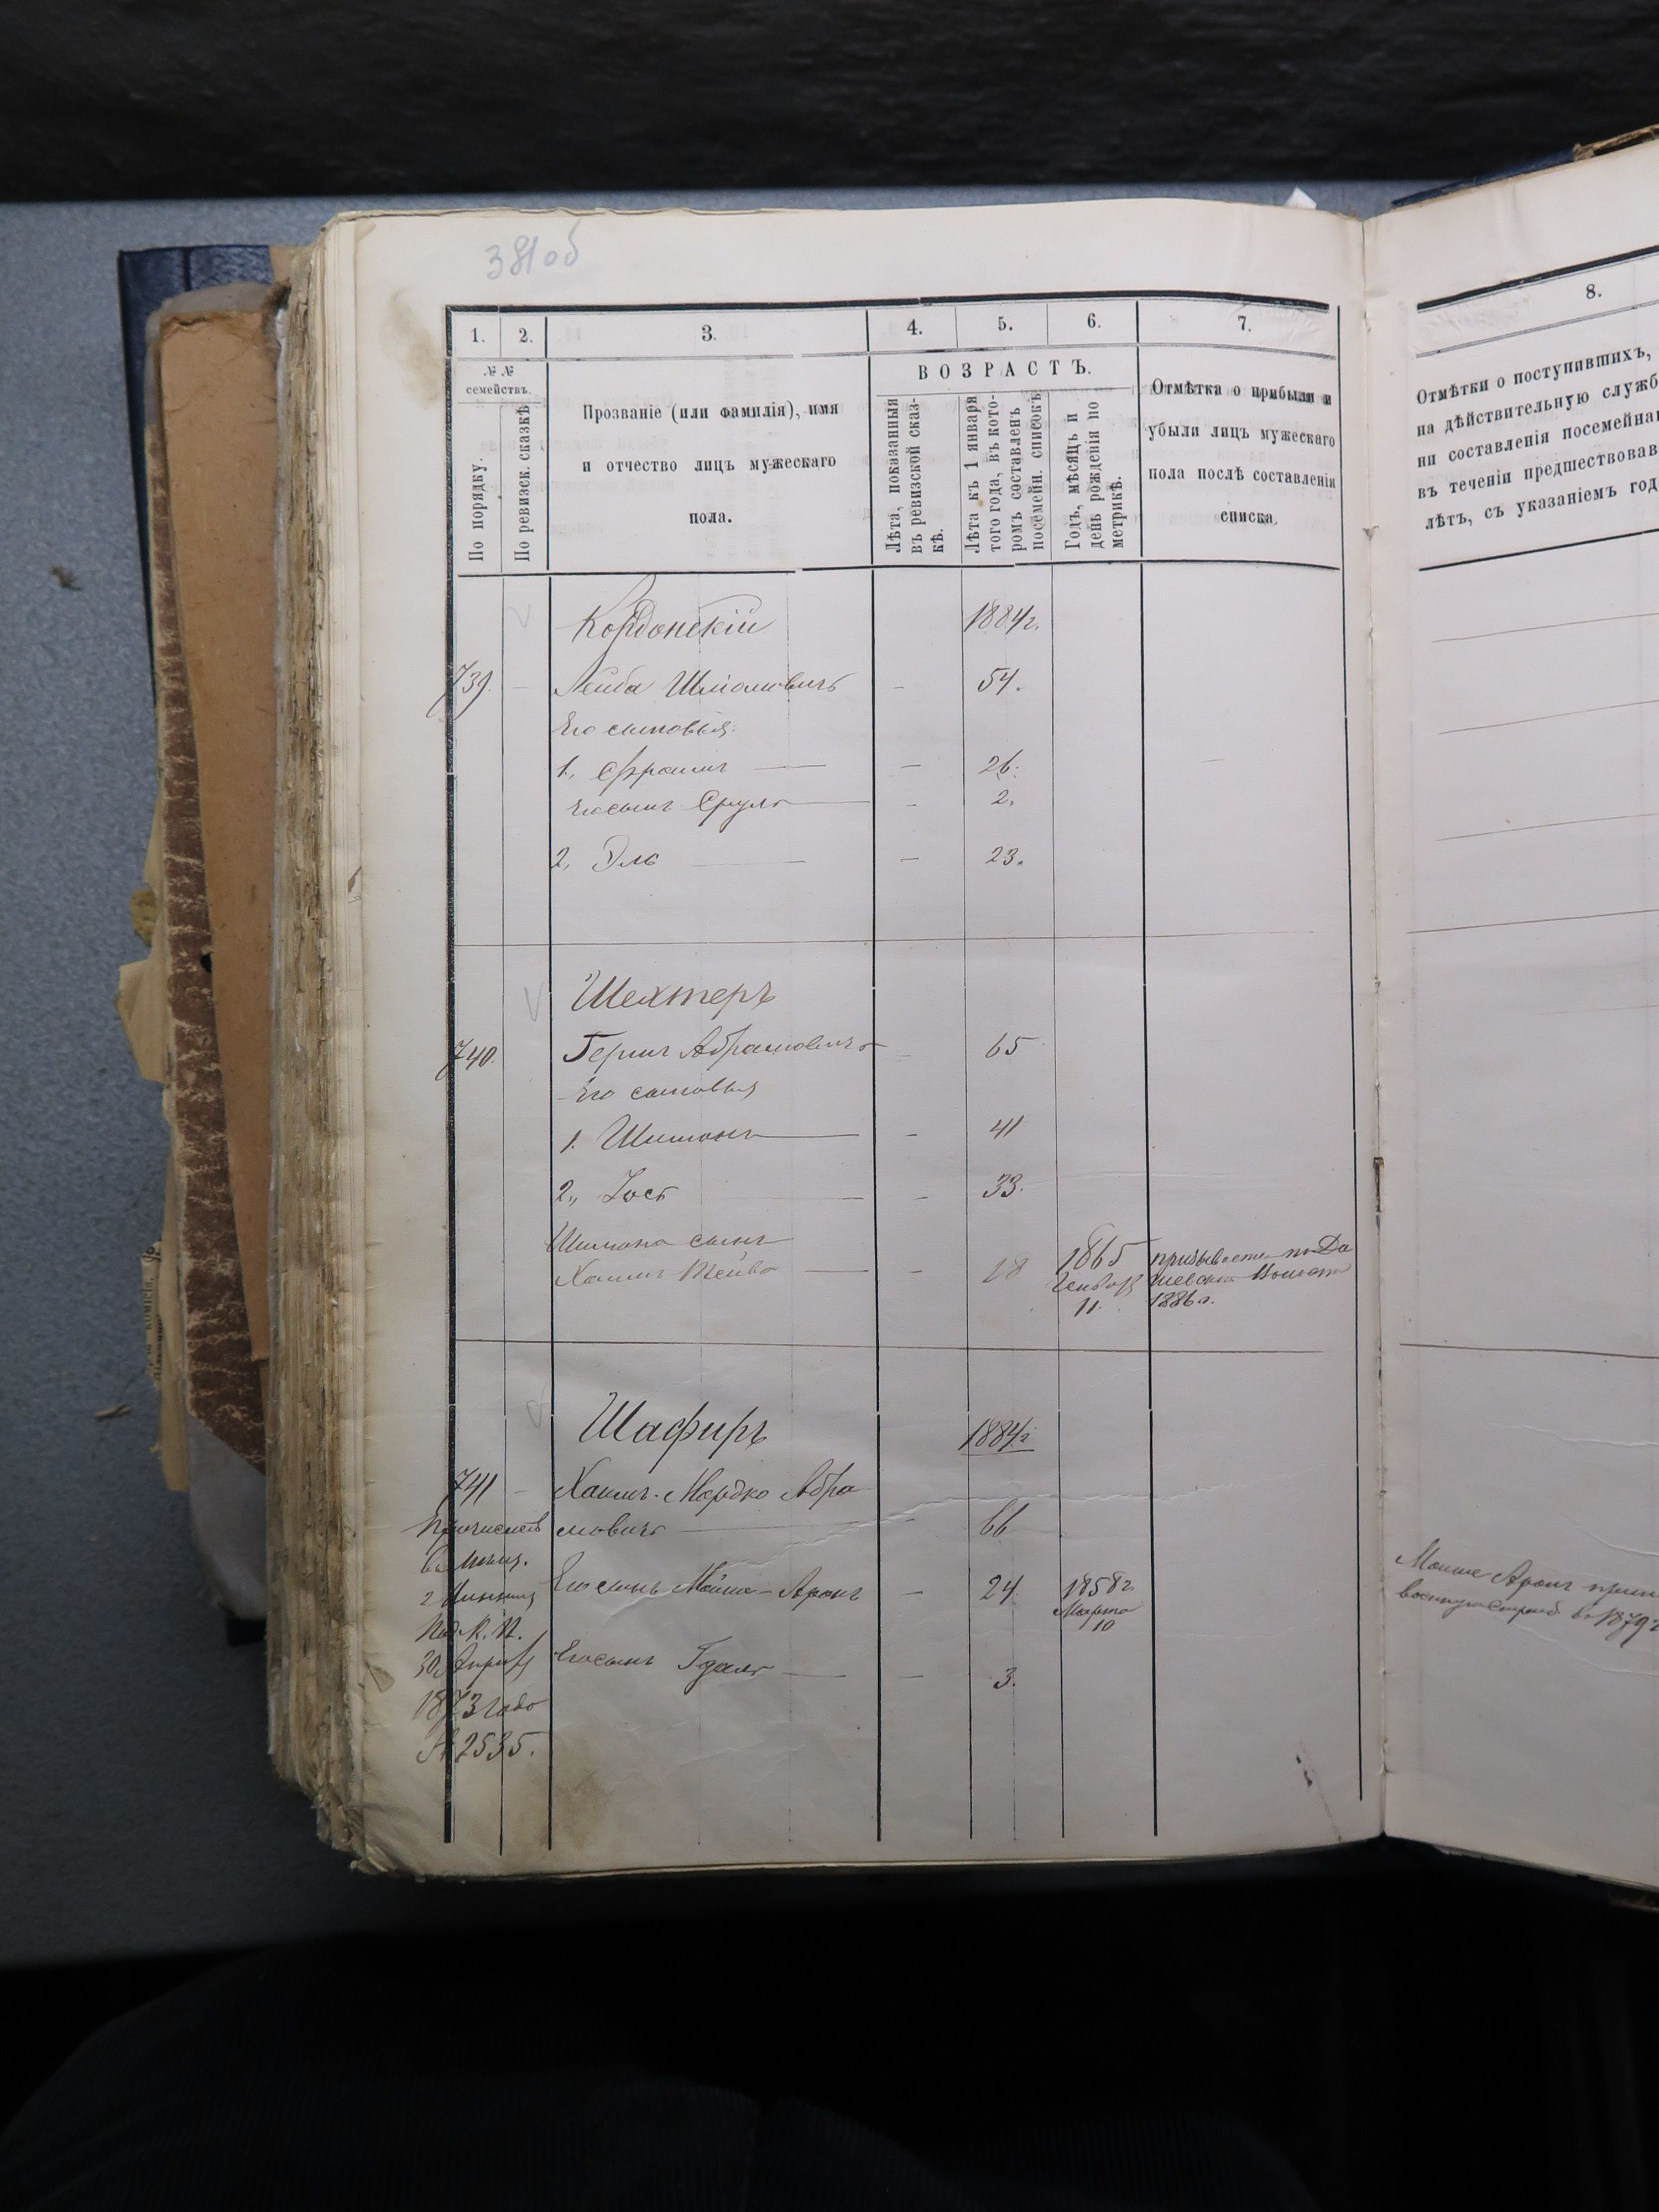 381об
1.
2.
3.
4.
5.
6.
7.
8.
№ №
семействъ.
По порядку.
По ревизск. сказкѣ
Прозваніе (или фамилія), имя
и отчество лицъ мужескаго
пола.
ВОЗРАСТЪ.
Лѣта, показанныя
въ ревизской сказ-
кѣ.
Лѣта къ 1 января
того года, въ кото-
ромъ составленъ
посемейн. списокъ
Годъ, мѣсяцъ и
день рожденія по
метрикѣ.
Отмѣтка о прибыли и
убыли лицъ мужескаго
пола послѣ составленія
списка
Отмѣтки о поступившихъ,
на дѣйствительную служб
ни составленія посемейна
въ теченіи предшествовав
лѣтъ, съ указаніемъ год
Кордонскій 1884 г.
739. – Лейба Шліомовичъ – 54.
Его сыновья.
1, Фроимъ – – 26.
Его сынъ Сруль – – 2.
2, Эль – – 23.
Шехтеръ
740. Гершъ Абрамовичъ – 65
Его сыновья
1. Шимонъ – – 41
2., Іось – – 33.
Шимона сынъ
Хаимъ Лейба – – 18 1865
Генваря
11.
1886 г.
Шафиръ 1884 г.
741 – Хаимъ-Мордко Абра
мовичъ – – 66
Его сынъ Мойше-Аронъ – 24. 1858 г.
Марта
10
Его сынъ Гдаль – – 3.
30 Апрѣля
1873 года
№ 2535.
Мойше Аронъ прин
въ 1879 г